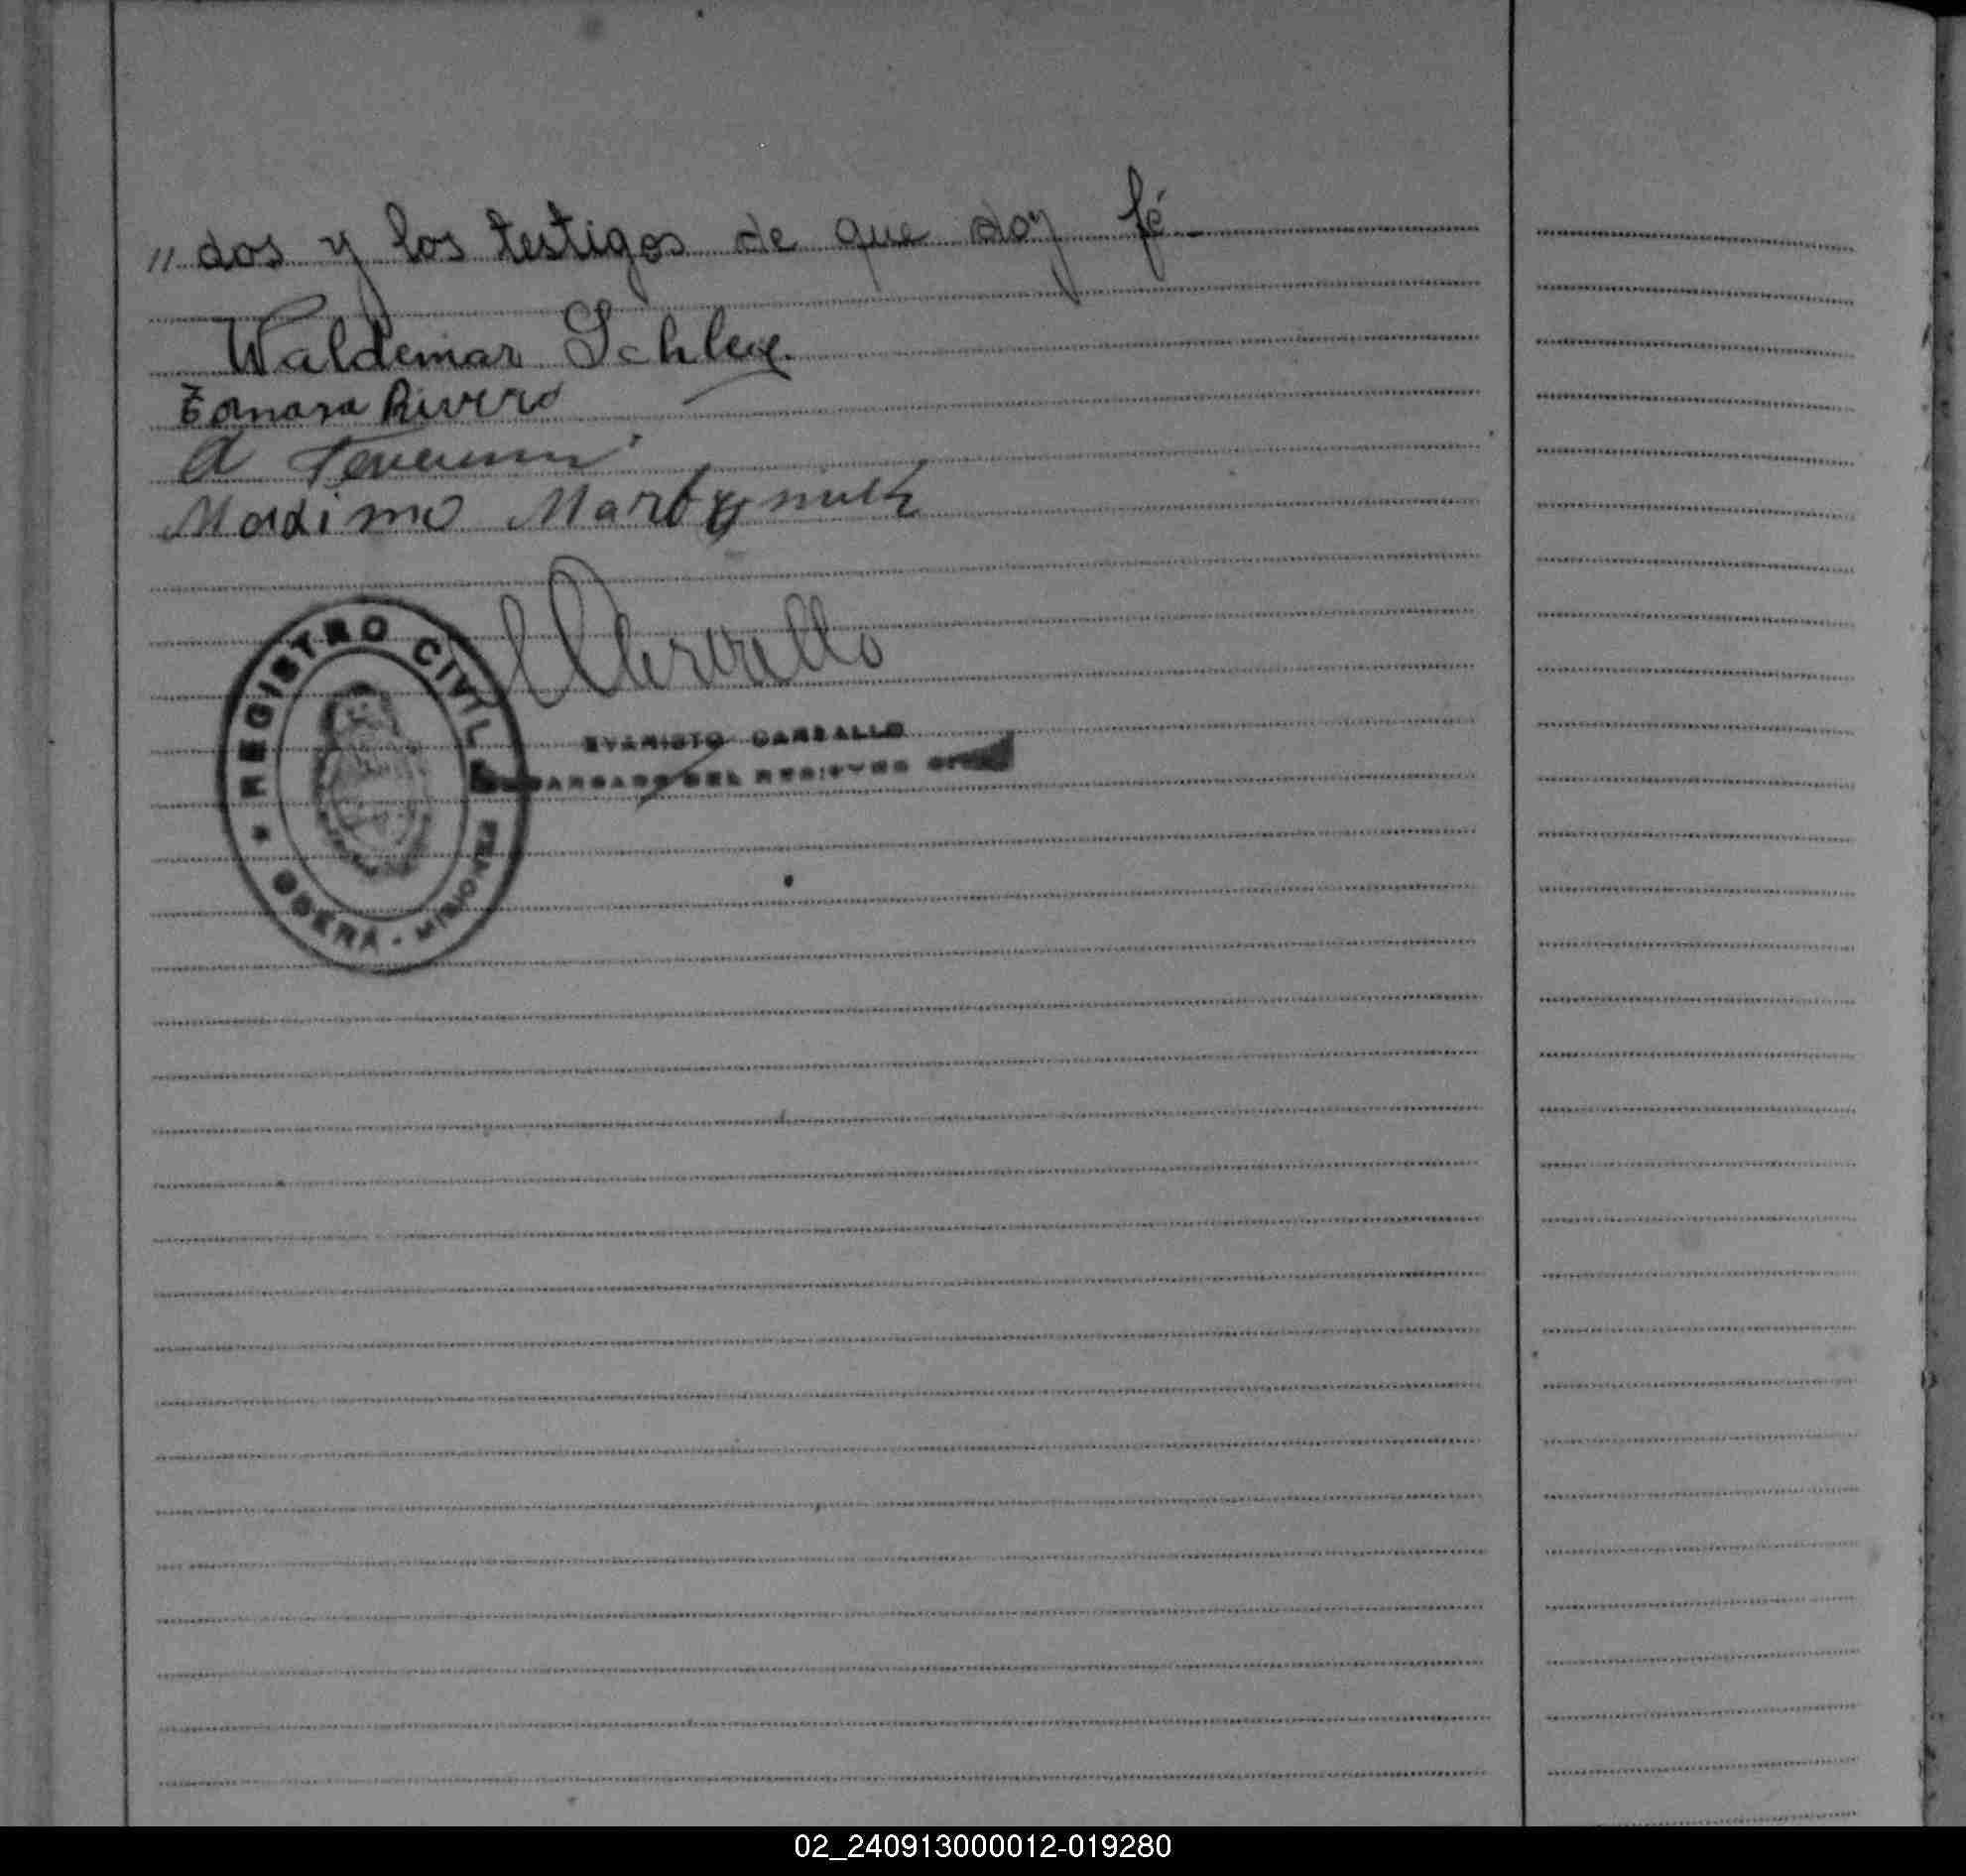 " dos y los testigos de que doy fé
Waldemar Schley
Tomasa Rivero
A
REGISTRO CIVIL
OBERA - MISIONES
EVARISTO CARBALLO
ENCARGADO DEL REGISTRO CIVIL
02_240913000012-019280